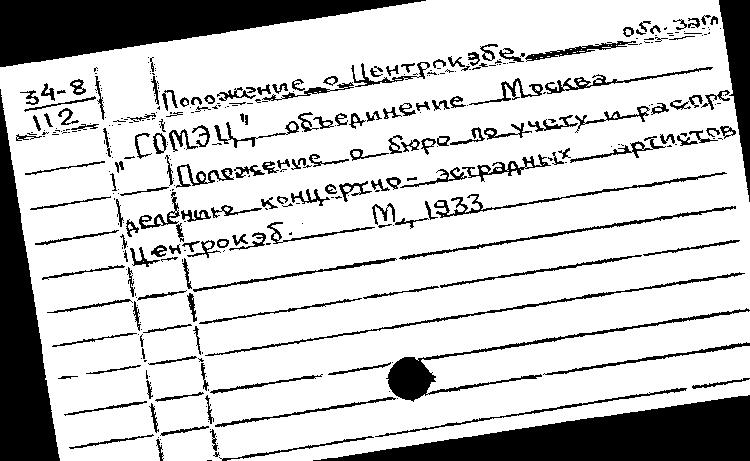 обл. загл
34-8
112
Положение о Центрокэбе.
"ГОМЭЦ", объединение Москва.
Положение о бюро по учету и распре
делению концертно-эстрадных артистов
Центрокэб. М., 1933